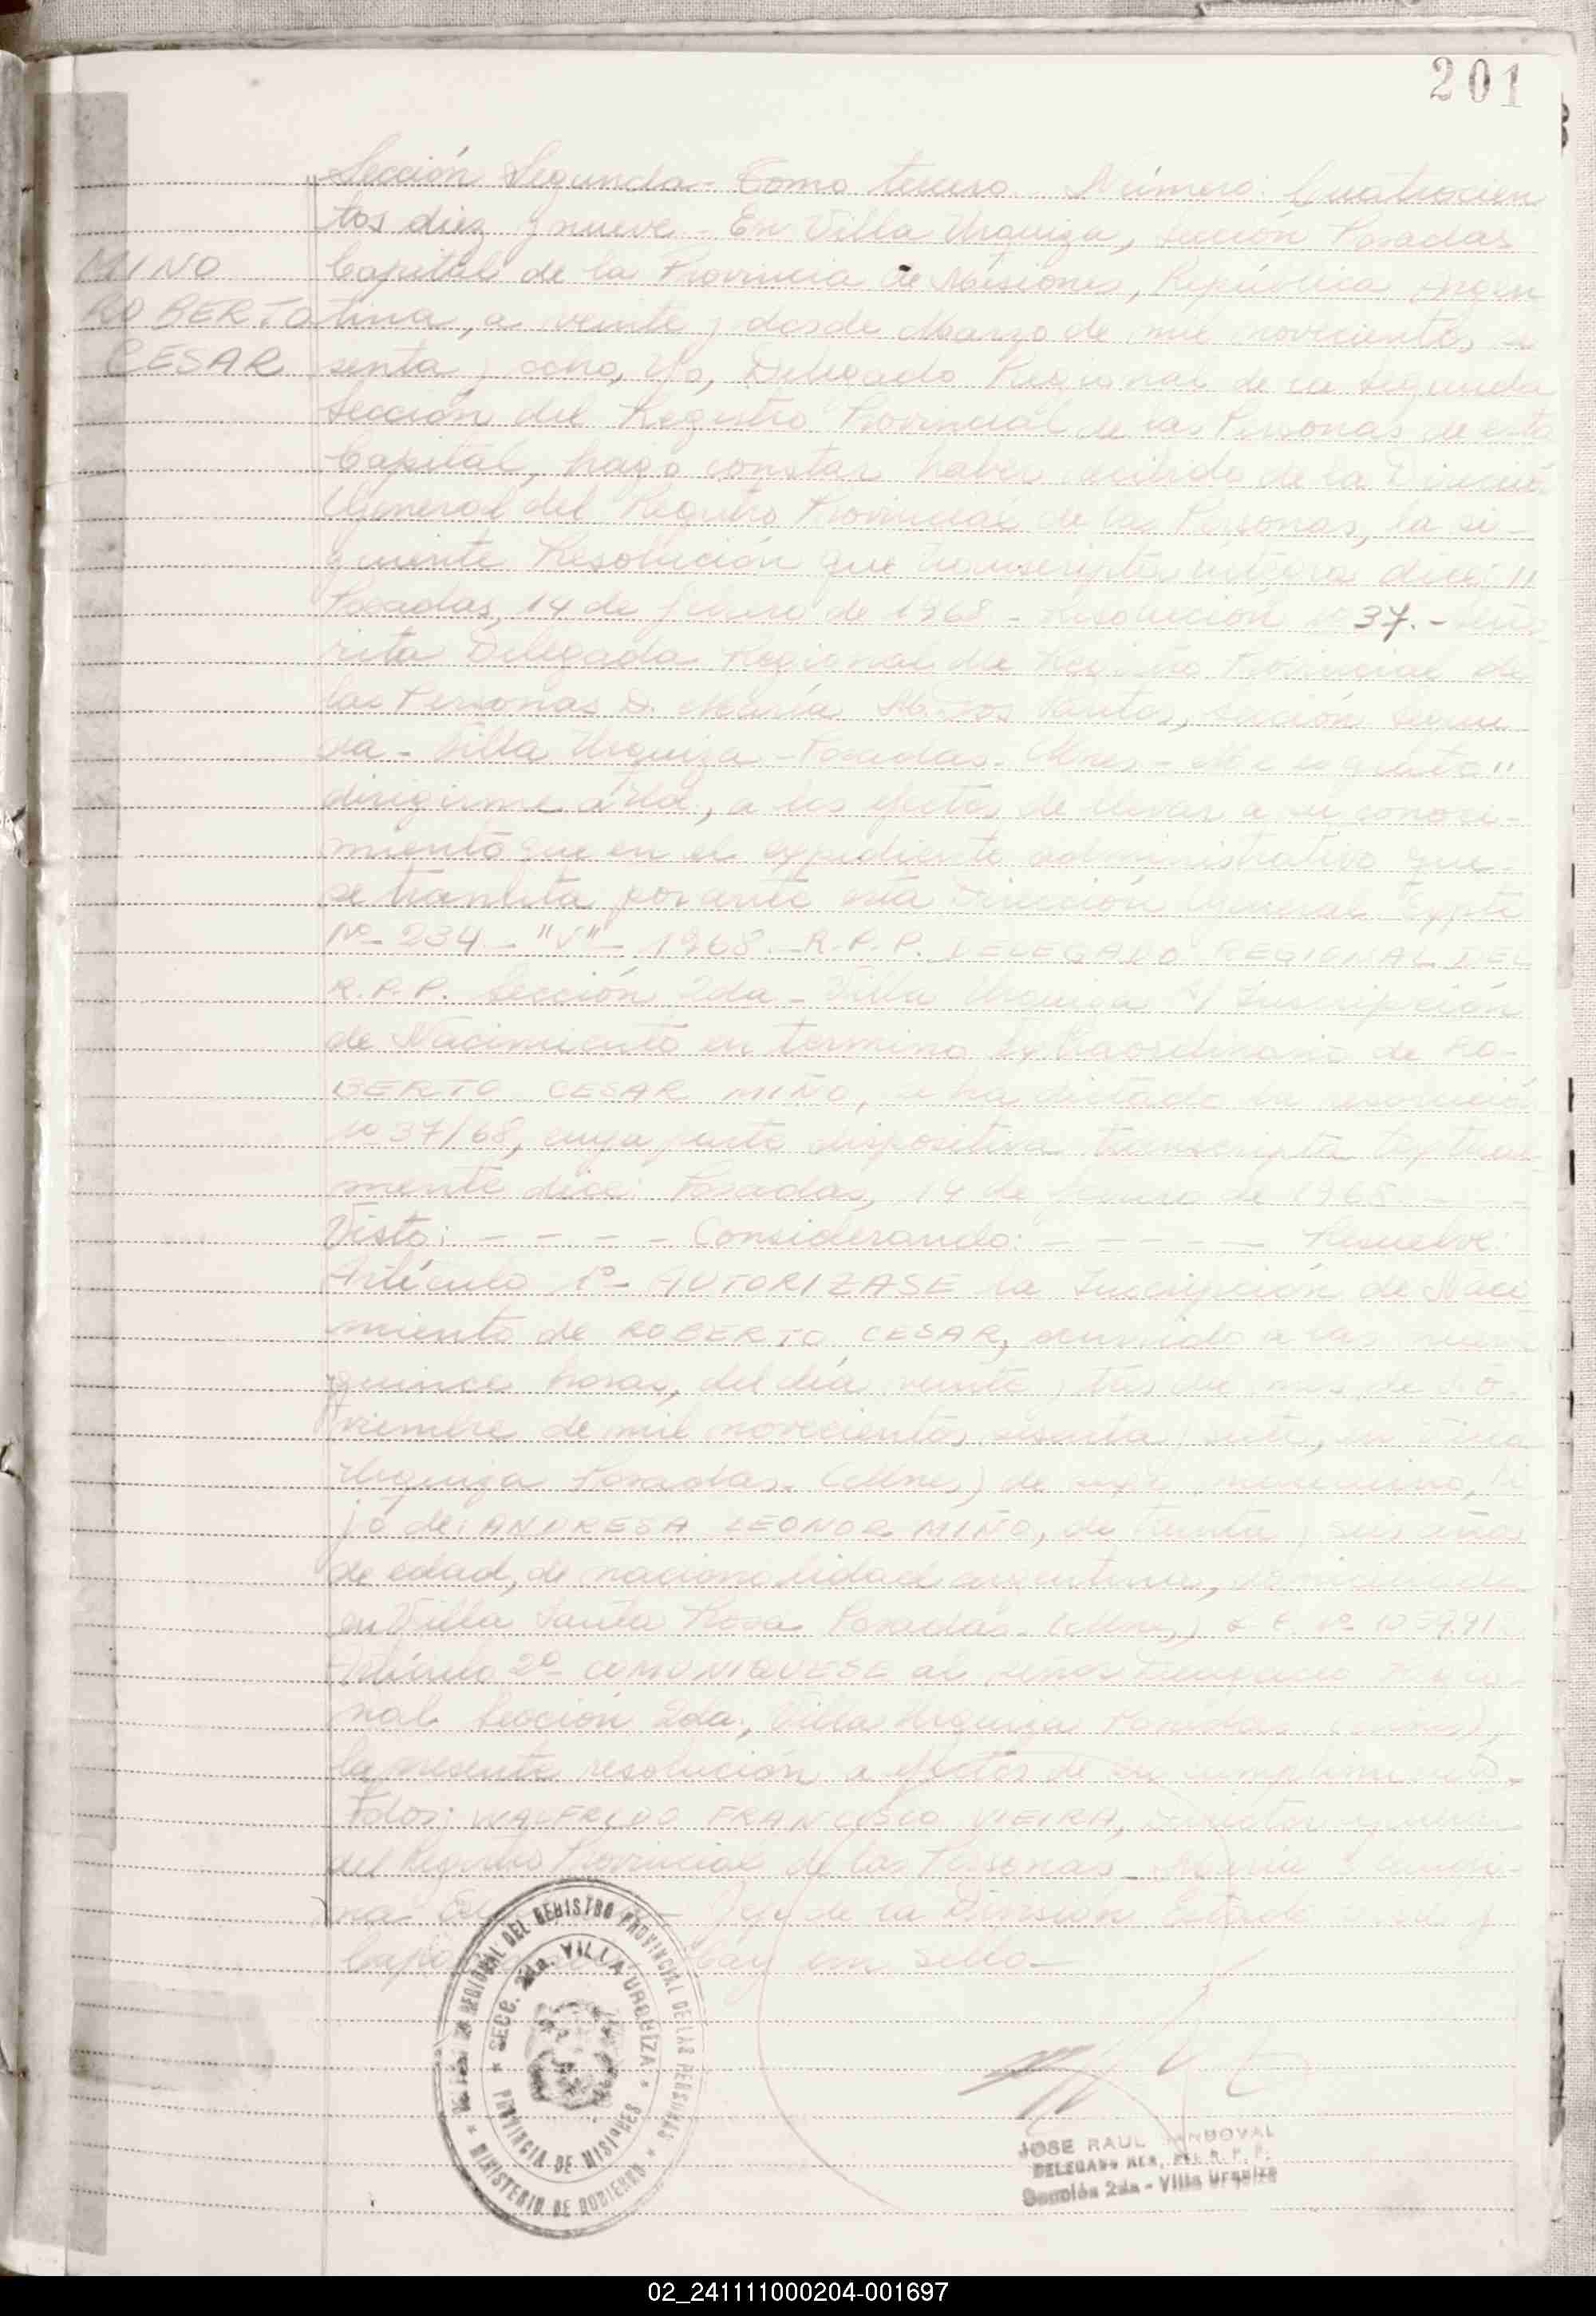 201
Sección Segunda - Tomo tercero. Número: Cuatrocien
tos diez y nueve - En Villa Urquiza, sección Posadas
MIÑO
Capital de la Provincia de Misiones, República Argen
ROBERTO
tina, a veinte y dos de Marzo de mil novecientos se
CESAR
senta y ocho, Yo, Delegado Regional de la Segunda
Sección del Registro Provincial de las Personas de esta
Capital, hago constar haber recibido de la Dirección
General del Registro Provincial de las Personas, la si-
guiente Resolución que transcripta íntegra dice: "
Posadas, 14 de febrero de 1968 - Resolución Nº 37. - Seño
rita Delegada Regional del Registro Provincial de
las Personas D. María M. Dos Santos, Sección Segun
da - Villa Urquiza - Posadas - Mnes - Me es grato "
dirigirme a Ud., a los efectos de llevar a su conoci-
miento que en el expediente administrativo que
se tramita por ante esta Dirección General Expte
Nº 234 - "V" - 1968 - R.P.P. DELEGADO REGIONAL DEL
R.P.P. Sección 2da - Villa Urquiza S/ Inscripción
de Nacimiento en termino Extraordinario de RO-
BERTO CESAR MIÑO, se ha dictado la resolución
Nº 37/68, cuya parte dispositiva transcripta textual-
mente dice: Posadas, 14 de febrero de 1968 - - -
Visto: - - - - Considerando: - - - - - Resuelve:
Artículo 1º - AUTORIZASE la Inscripción de Naci
miento de ROBERTO CESAR, ocurrido a las
quince horas, del día veinte y tres del mes de No-
viembre de mil novecientos sesenta y siete, en Villa
Urquiza Posadas. (Mnes) de sexo masculino, hi
jo de: ANDRESA LEONOR MIÑO, de treinta y seis años
de edad, de nacionalidad argentina, domiciliada
en Villa Santa Rosa Posadas. (Mnes)
Artículo 2º - COMUNIQUESE al señor Delegado Regio
nal Sección 2da, Villa Urquiza Posadas (Mnes),
la presente resolución a efectos de su cumplimiento.
Fdos: WALFREDO FRANCISCO VIEIRA, Director general
del Registro Provincial de las Personas - María
na Jefe de la División Estado Civil y
Capa Hay un sello -
REGIONAL DEL REGISTRO PROVINCIAL DE LAS PERSONAS
* SECC. 2da. VILLA URQUIZA *
PROVINCIA DE MISIONES
* MINISTERIO DE GOBIERNO *
JOSE RAUL SANDOVAL
DELEGADO REG. DEL R. P. P.
Sección 2da - Villa Urquiza
02_241111000204-001697